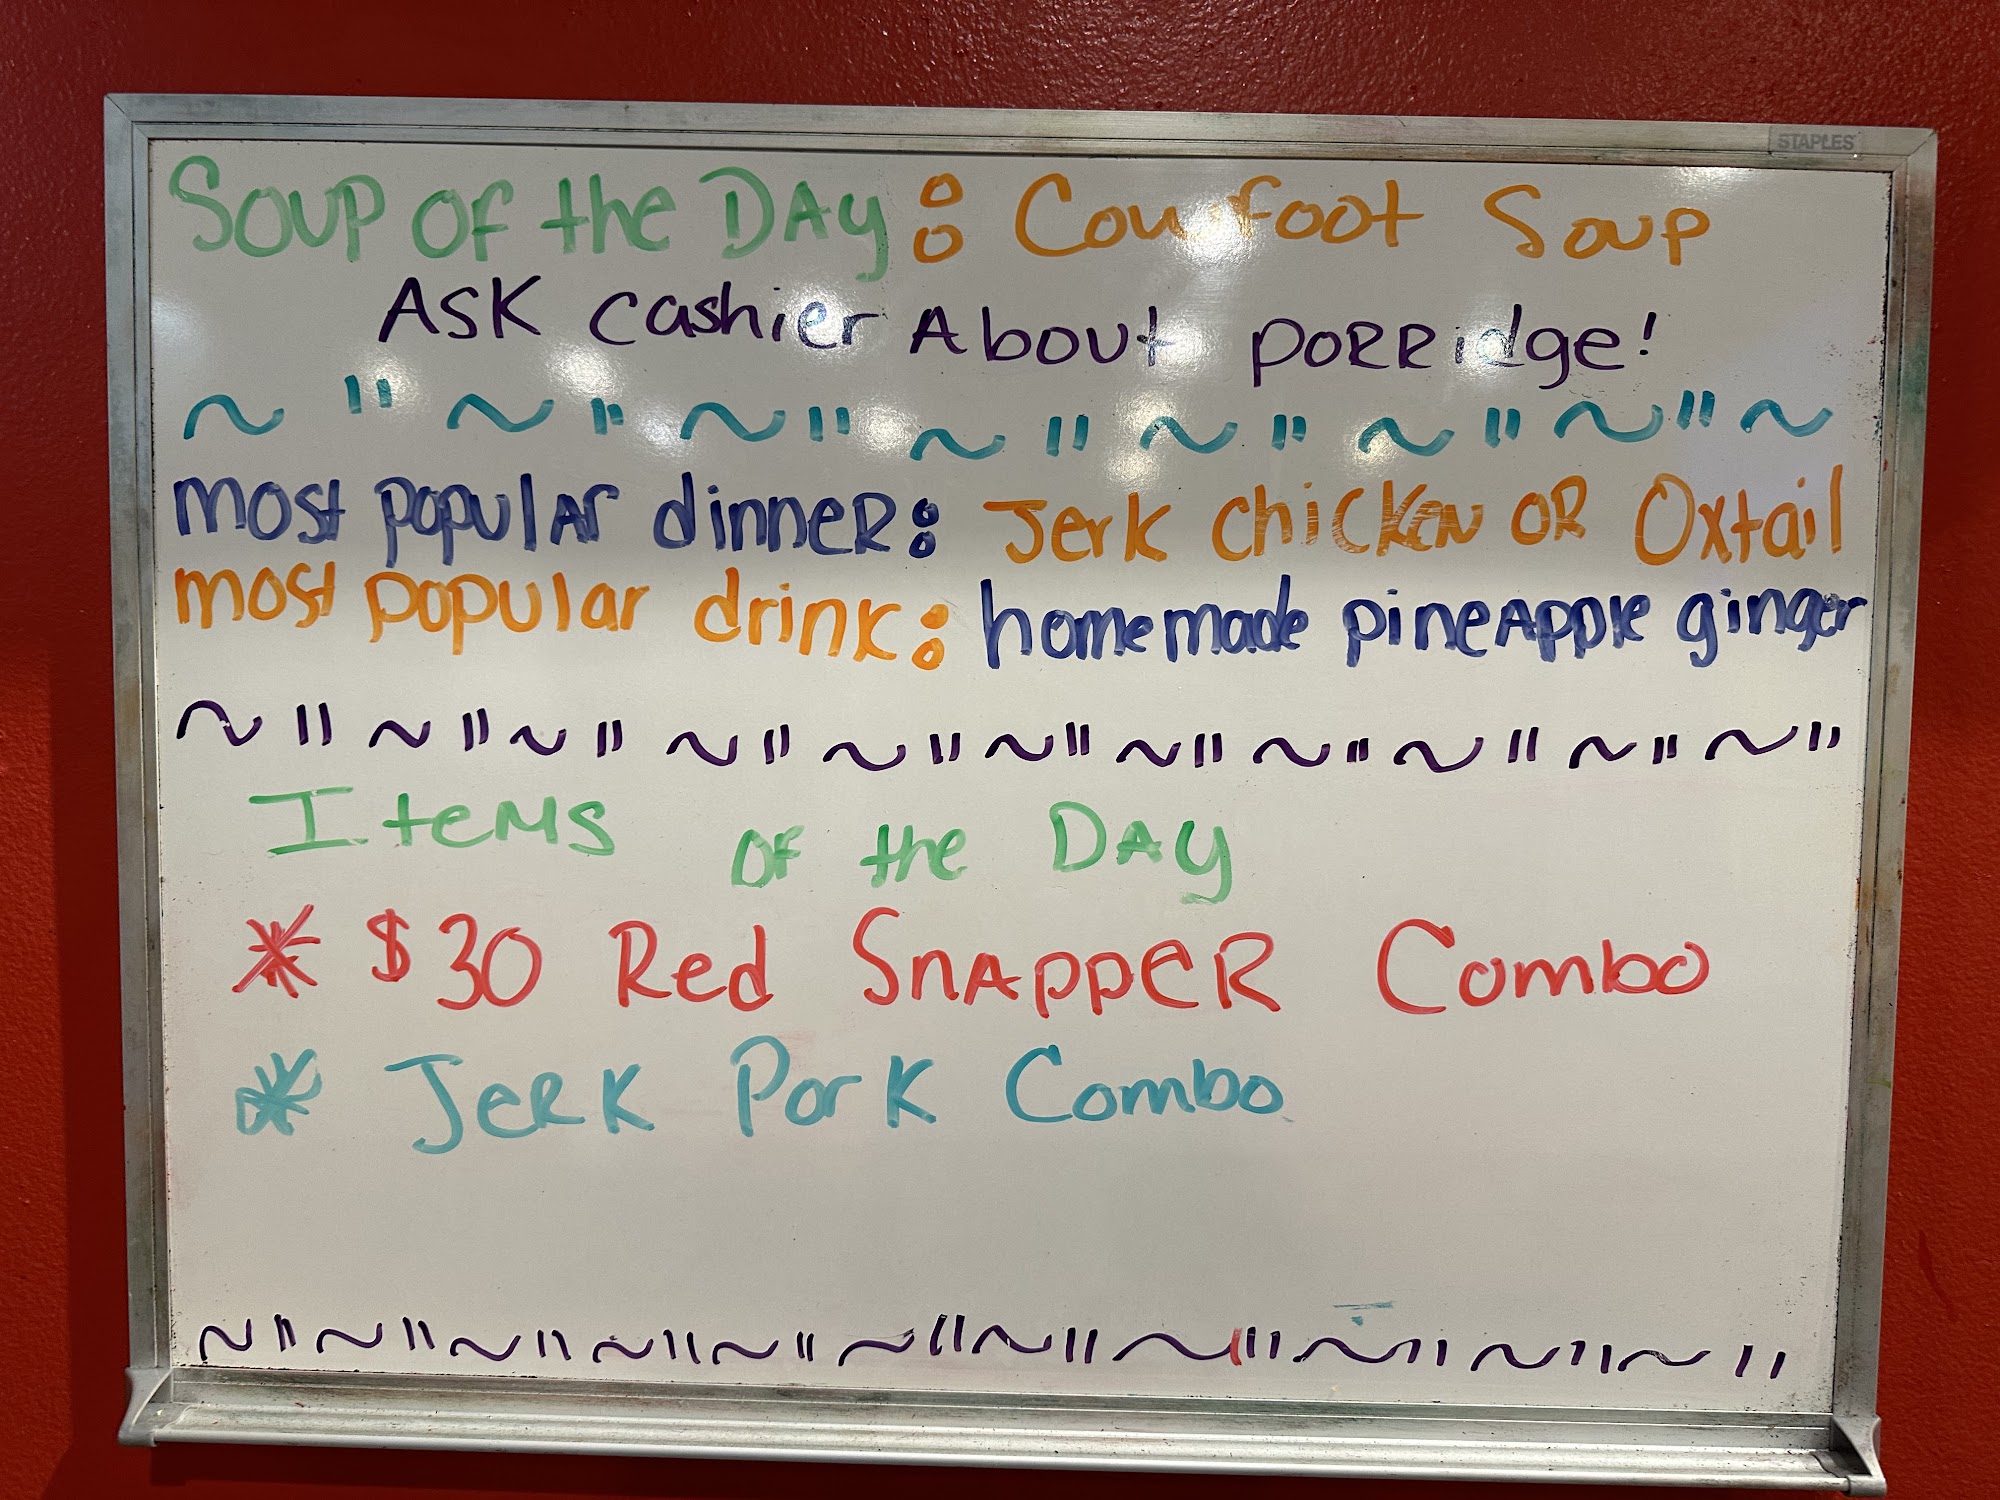 STAPLES
Soup of the DAy: Cowfoot Soup
ASK cashier About poRRidge!
~ " ~ " ~ " ~ " ~ " ~ " ~ " ~
most populAr dinneR: Jerk chicKeN OR Oxtail
most popular drink: homemade pineApple ginger
~ " ~ " ~ " ~ " ~ " ~ " ~ " ~ " ~ " ~ " ~ "
Items of the DAy
* $30 Red SnAppeR Combo
* JeRK PorK Combo
~ " ~ " ~ " ~ " ~ " ~ " ~ " ~ " ~ " ~ " ~ "